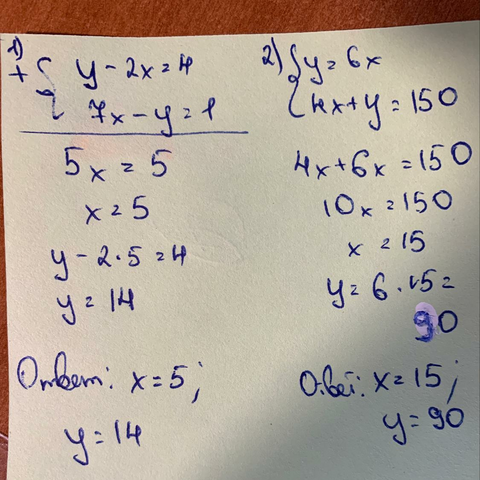 1)
+ { y - 2x = 4
7x - y = 1
5x = 5
x = 5
y - 2·5 = 4
y = 14
Ответ: x = 5;
y = 14
2) { y = 6x
4x + y = 150
4x + 6x = 150
10x = 150
x = 15
y = 6·15 =
90
Ответ: x = 15;
y = 90